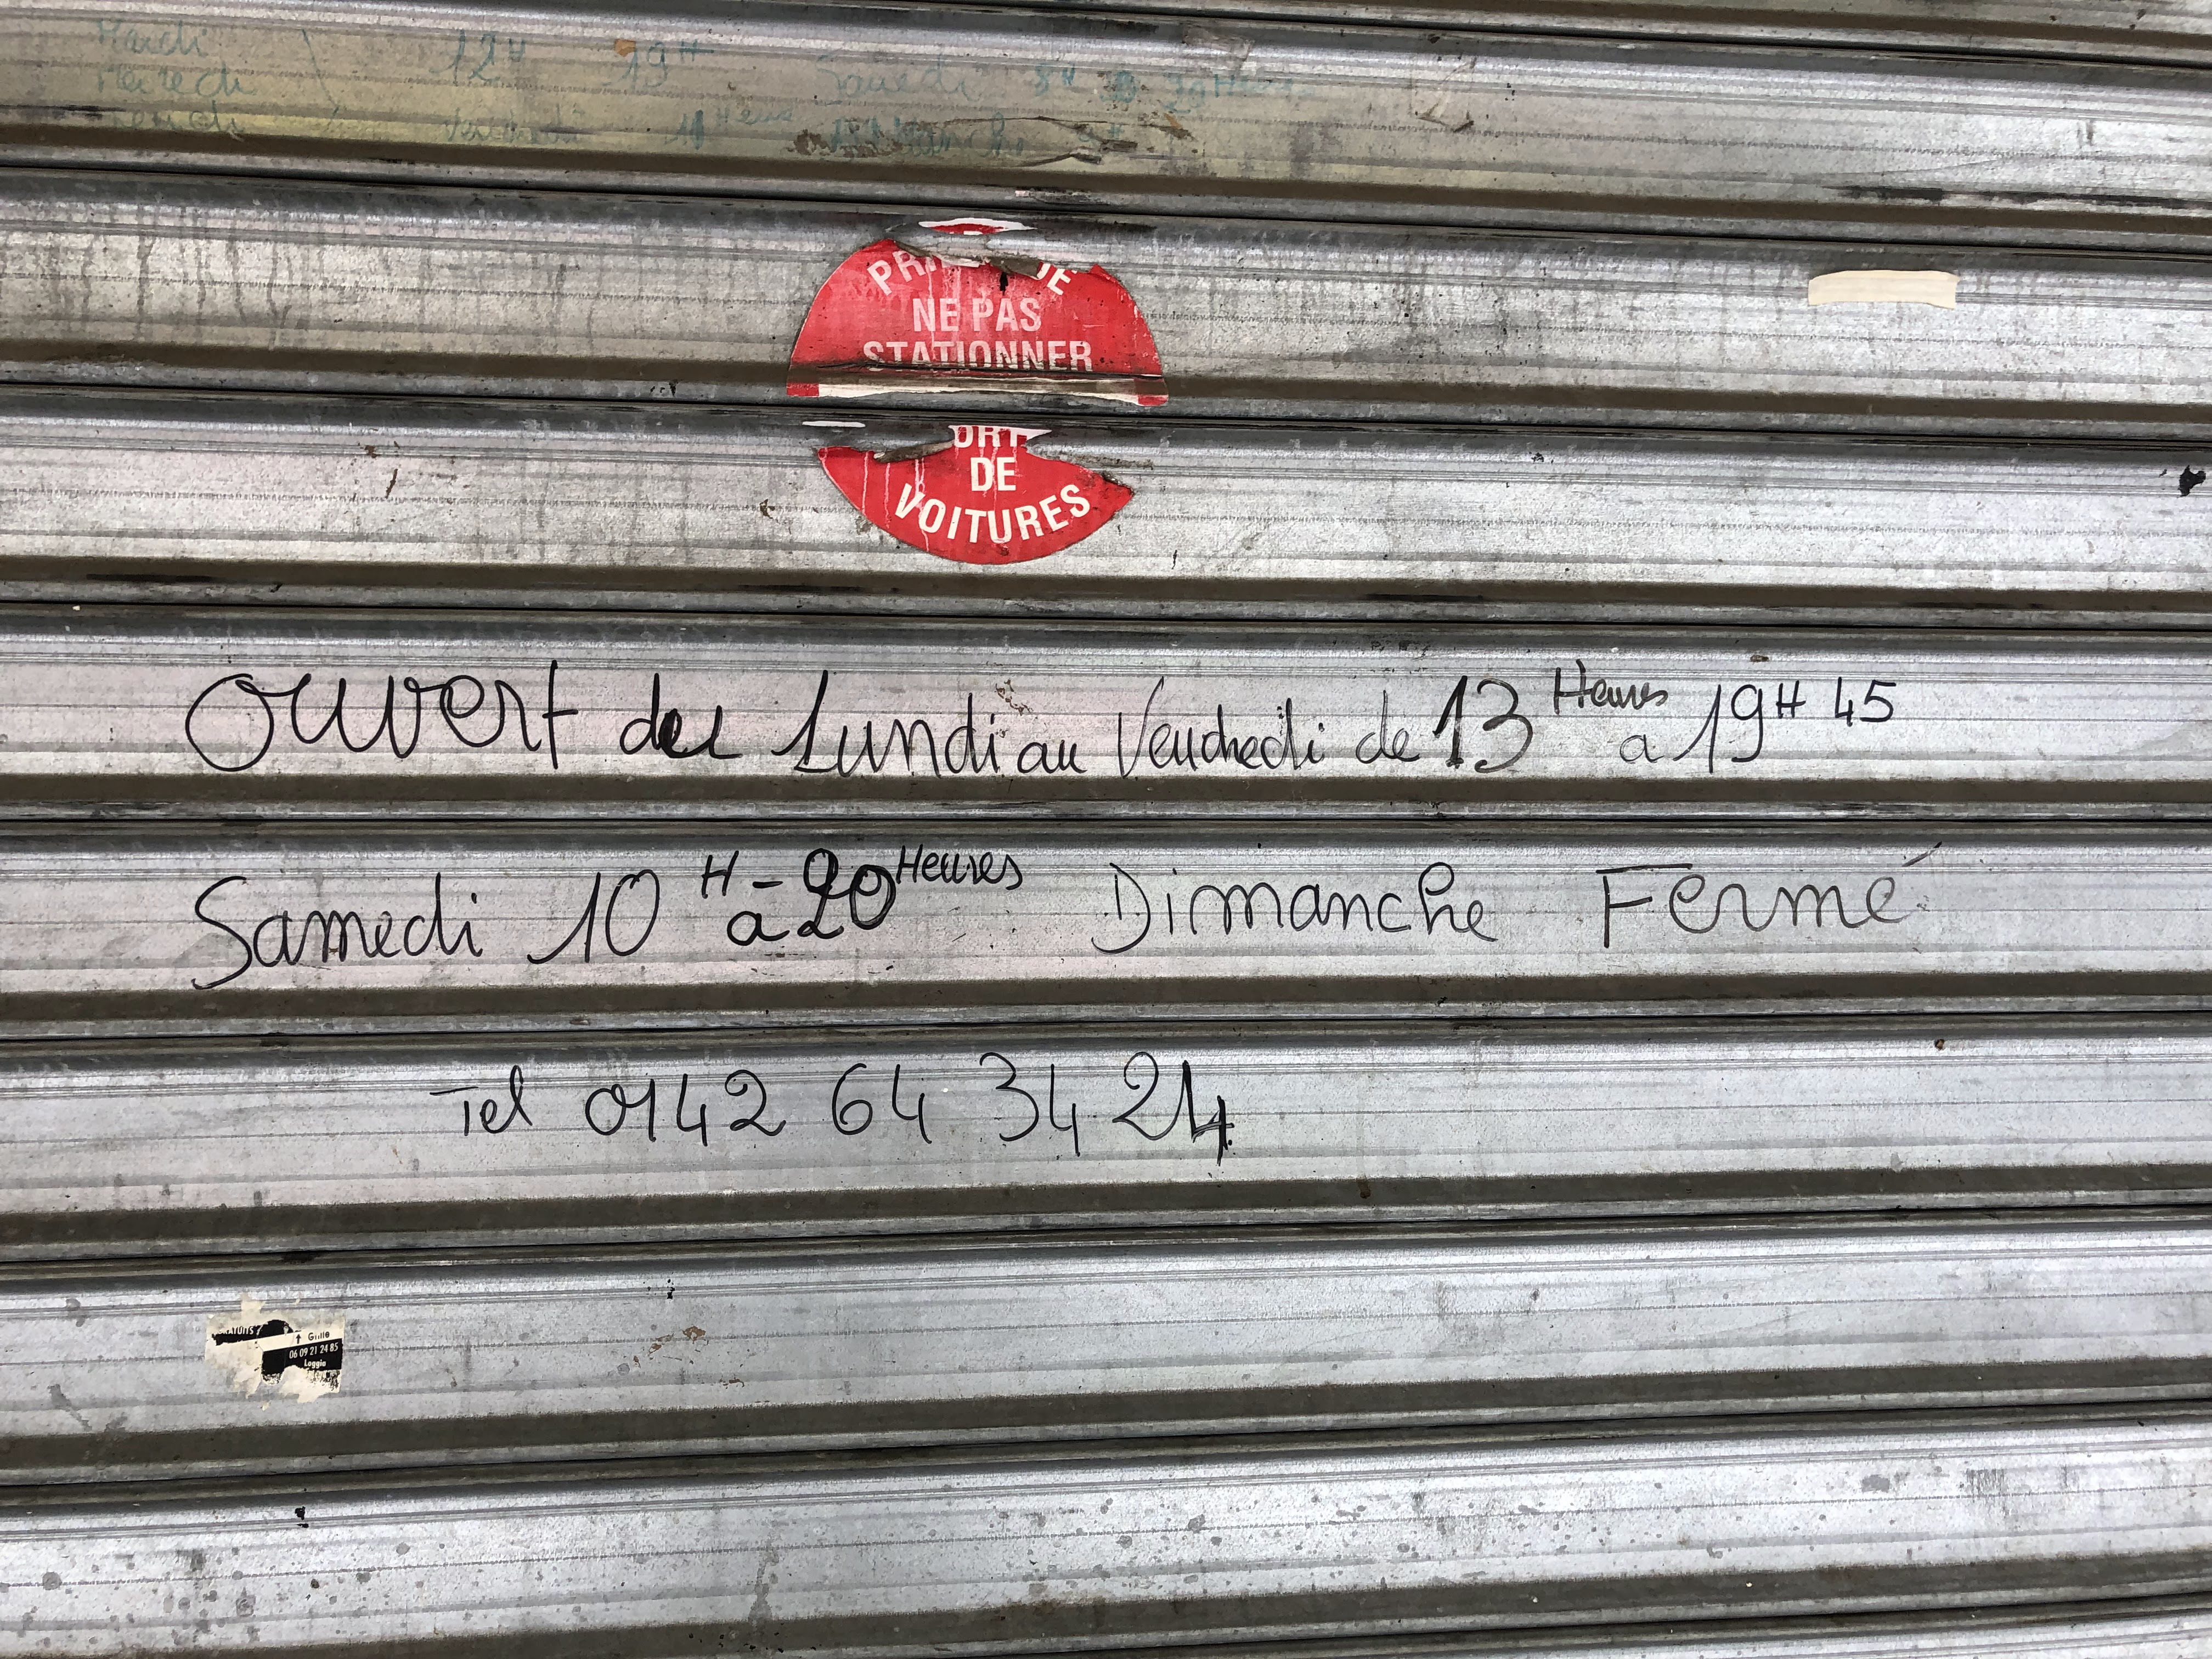 Mardi 12H 19H Samedi
Vendredi 11 Heures Dimanche
NE PAS
STATIONNER
DE
VOITURES
Ouvert du Lundi au Vendredi de 13 Heures a 19H 45
Samedi 10 H - a 20 Heures Dimanche Fermé
Tel 0142 64 34 24
↑ Grille
06 09 21 24 85
Loggia